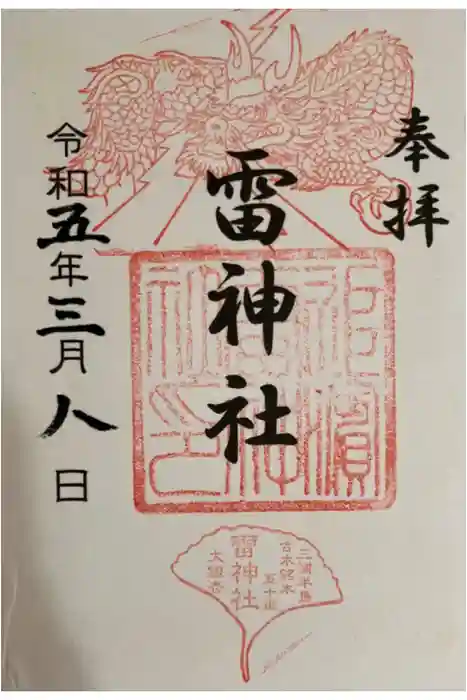 奉拝
雷神社
令和五年三月八日
三浦半島
古木銘木
五十選
雷神社
大銀杏